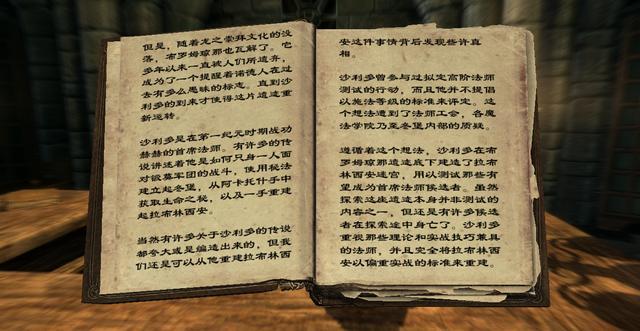 但是，随着龙之崇拜文化的没
落，布罗姆琼那也瓦解了。它
多年以来一直被人们所遗弃，
成为了一个提醒着诺德人在过
去有多么愚昧的标志。直到沙
利多的到来才使得这片遗迹重
新运转。
沙利多是在第一纪元时期战功
赫赫的首席法师。有许多的传
说讲述着他是如何只身一人面
对银莫军团的战斗，使用秘法
建立起冬堡，从阿卡托什手中
获取生命之秘，以及一手重建
起拉布林西安。
当然有许多关于沙利多的传说
都夸大或是编造出来的，但我
们还是可以从他重建拉布林西
安这件事情背后发现些许真
相。
沙利多曾参与过拟定高阶法师
测试的行动，而且他并不提倡
以施法等级的标准来评定。这
个想法遭到了法师工会，各魔
法学院乃至冬堡内部的质疑。
遵循着这个想法，沙利多在布
罗姆琼那遗迹底下建造了拉布
林西安迷宫，用以测试那些有
望成为首席法师候选者。虽然
探索这座遗迹本身并非测试的
内容之一，但还是有许多候选
者在探索途中身亡了。沙利多
重视那些理论和实战技巧兼具
的法师，并且完全将拉布林西
安以偏重实战的标准来重建。